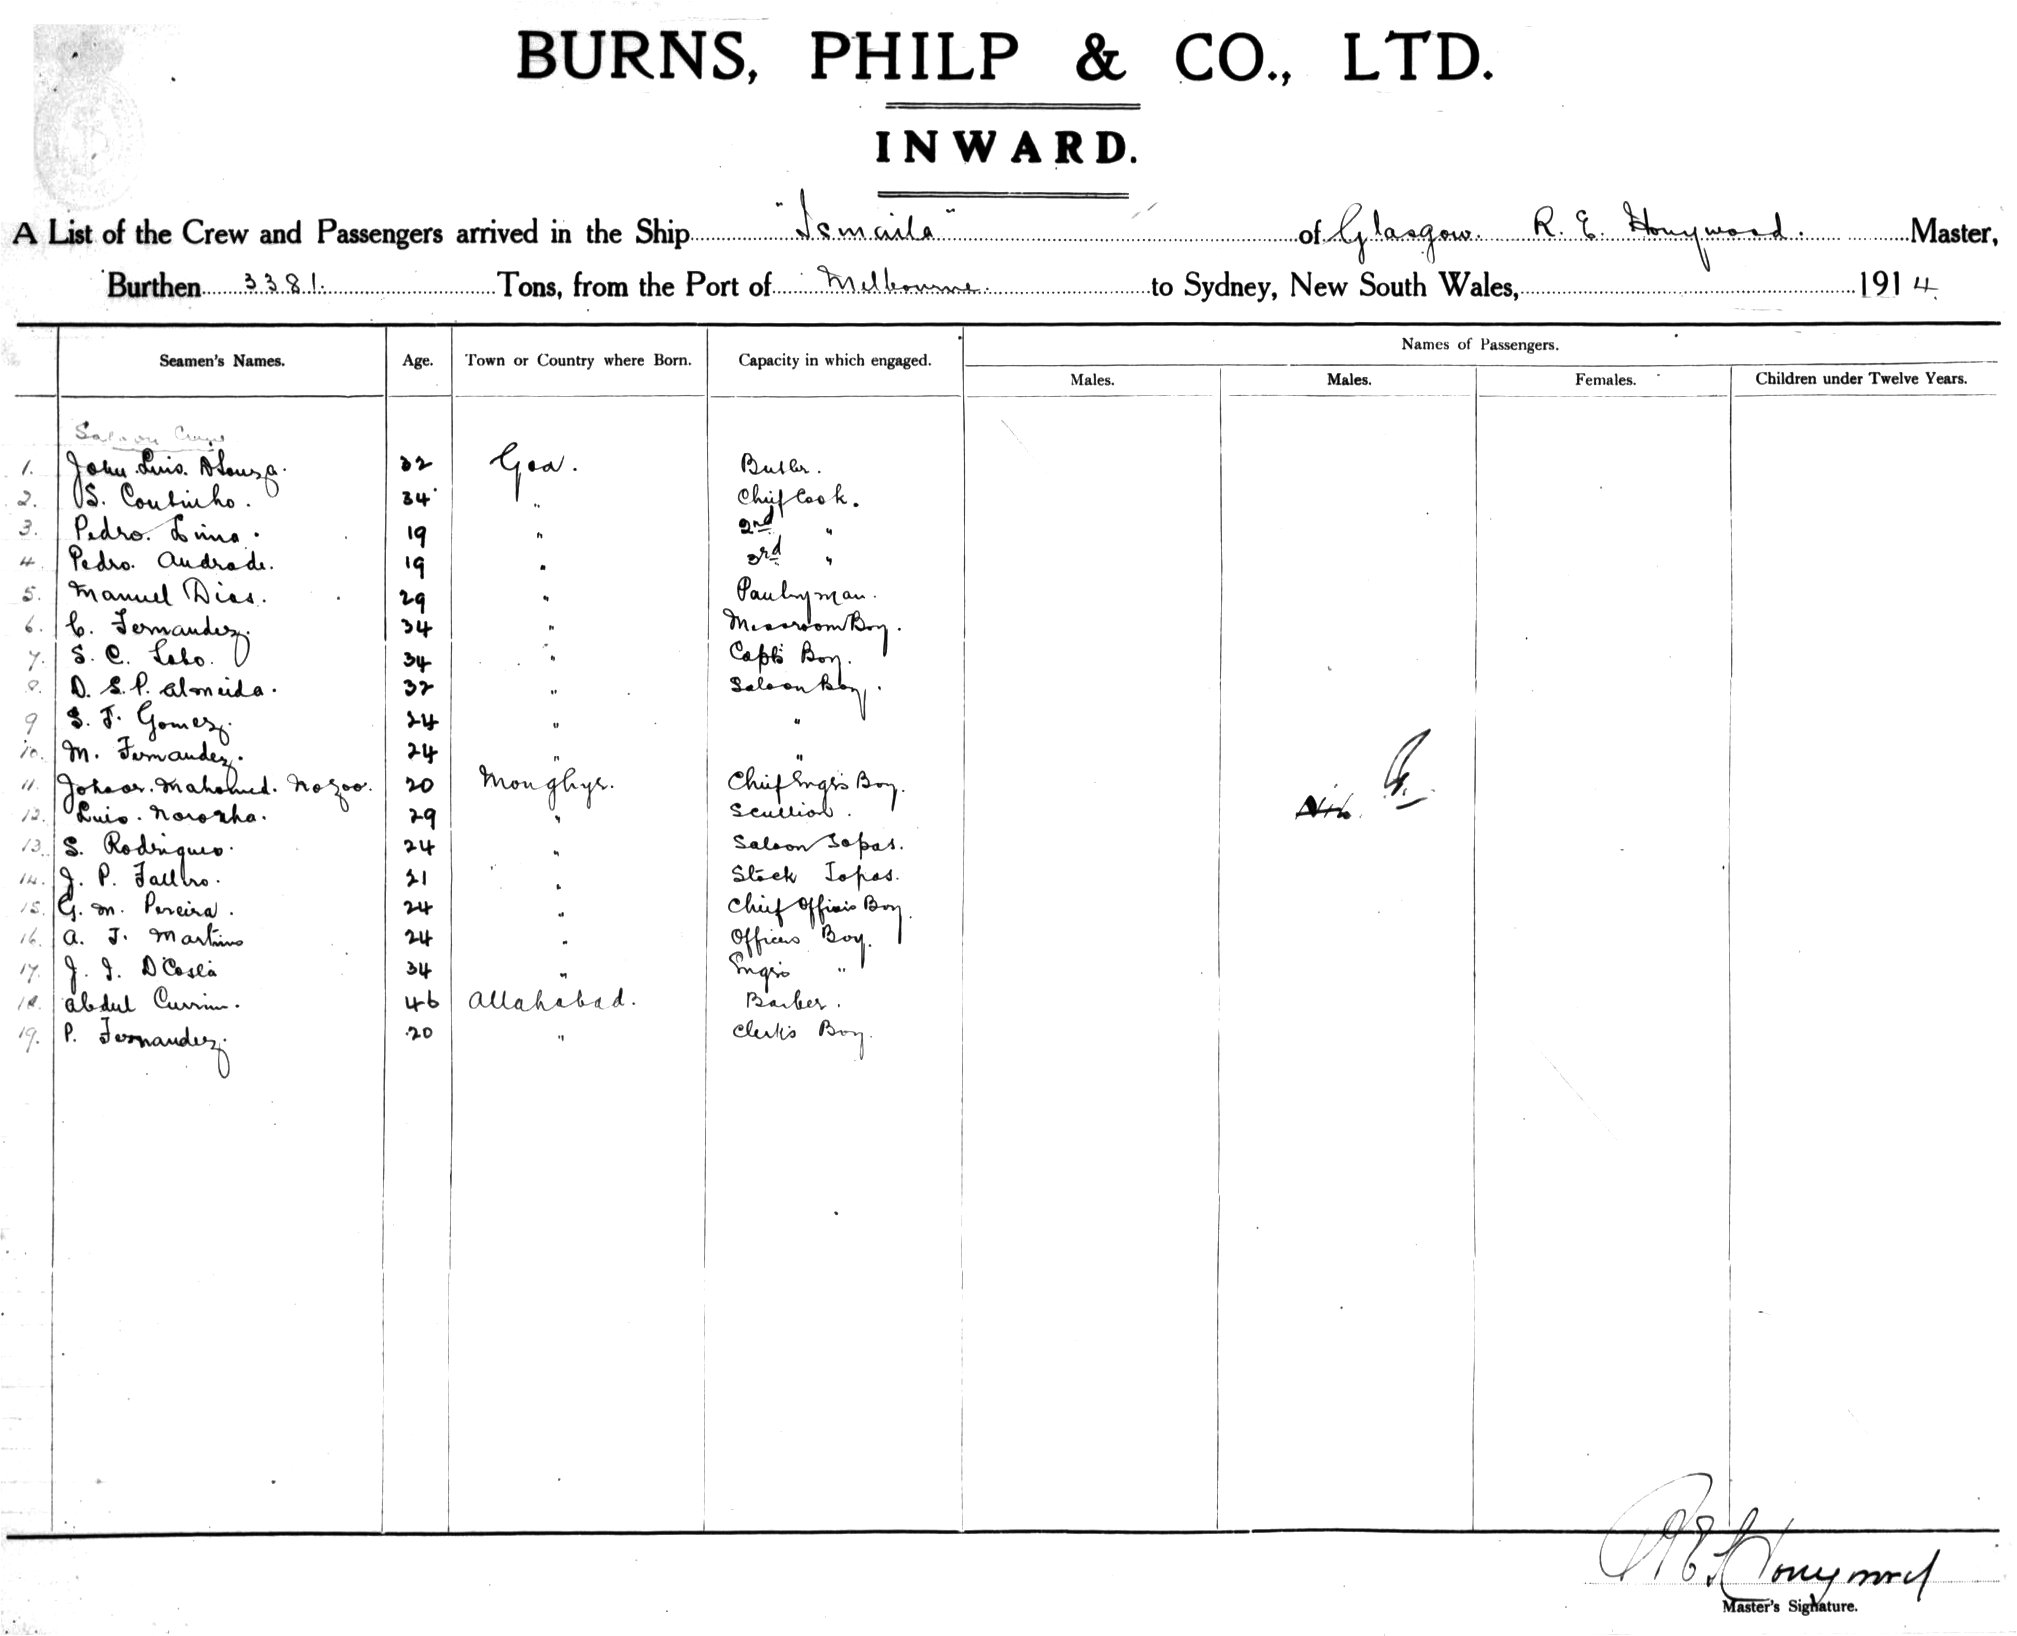 BURNS, PHILP & CO., LTD.
INWARD.
A List of the Crew and Passengers arrived in the Ship "Ismaila" of Glasgow. R. E. Honywood. Master,
Burthen 3381. Tons, from the Port of Melbourne. to Sydney, New South Wales, 1914
Names of Passengers.
Seamen's Names. Age. Town or Country where Born. Capacity in which engaged. Males. Males. Females. Children under Twelve Years.
Saloon Crew
1. John Luis DSouza. 32 Goa. Butler.
2. S. Coutinho. 34 " Chief Cook.
3. Pedro. Lima. 19 " 2nd "
4. Pedro. Andrade. 19 " 3rd "
5. Manuel Dias. 29 " Pantryman.
6. C. Fernandez. 34 " Messroom Boy.
7. S. C. Lobo. 34 " Capt's Boy.
8. D. S. P. Almeida. 32 " Saloon Boy.
9 S. F. Gomez. 24 " "
10. M. Fernandez. 24 " "
11. Mahomed. 20 Monghyr. Chief Engr's Boy.
12. Luis. Noronha. 29 " Scullion.
13. S. Rodrigues. 24 " Saloon Topas.
14. J. P. 21 " Topas.
15. G. M. Pereira. 24 " Chief Officer's Boy.
16. A. F. Martins 24 " Officers Boy.
17. J. J. D'Costa 34 " Engrs "
18. Abdul Currim. 46 Allahabad. Barber.
19. P. Fernandez. 20 " Clerk's Boy.
Nil.
R E Honywood
Master's Signature.